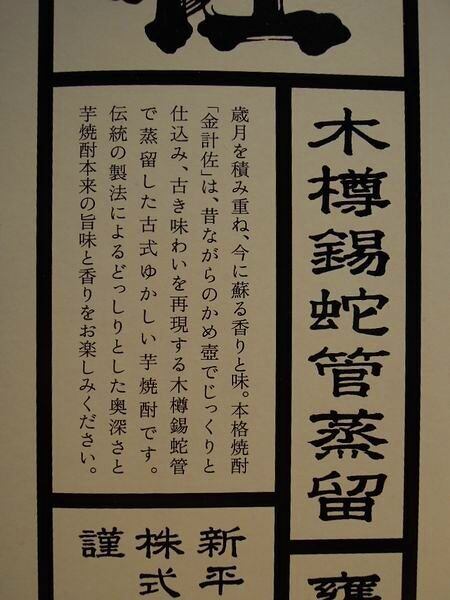 佐
木樽錫蛇管蒸留
歳月を積み重ね、今に蘇る香りと味。本格焼酎
「金計佐」は、昔ながらのかめ壺でじっくりと
仕込み、古き味わいを再現する木樽錫蛇管
で蒸留した古式ゆかしい芋焼酎です。
伝統の製法によるどっしりとした奥深さと
芋焼酎本来の旨味と香りをお楽しみください。
新平
株式
謹